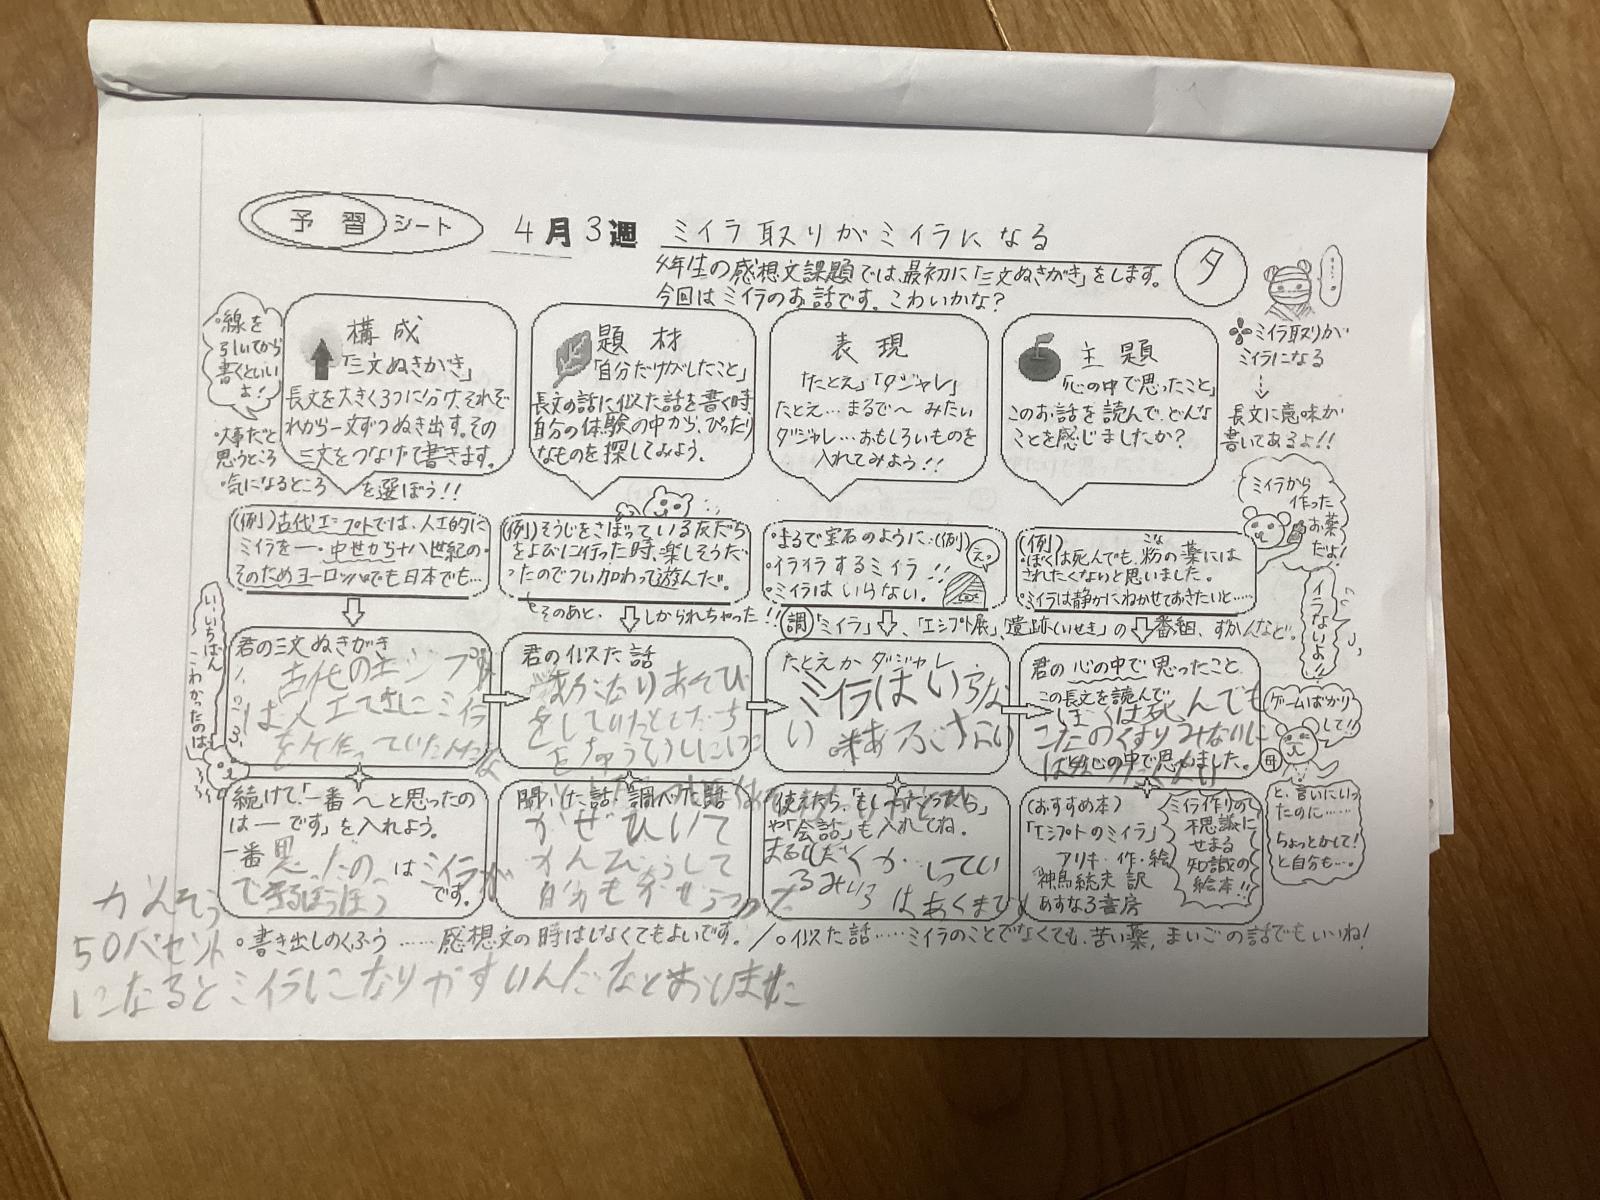 予習シート 4月3週 ミイラ取りがミイラになる
タ
4年生の感想文課題では、最初に「三文ぬきがき」をします。
今回はミイラのお話です。こわいかな?
・線を
引いてから
書くといい
よ!
・大事だと
思うところ
・気になるところ を選ぼう!!
構成
「三文ぬきがき」
長文を大きく3つに分け、それぞ
れから一文ずつぬき出す。その
三文をつなげて書きます。
題材
「自分だけがしたこと」
長文の話に似た話を書く時、
自分の体験の中から、ぴったり
なものを探してみよう。
表現
「たとえ」「ダジャレ」
たとえ…まるで〜みたい
ダジャレ…おもしろいものを
入れてみよう!!
主題
「心の中で思ったこと」
このお話を読んで、どんな
ことを感じましたか?
ミイラ取りが
ミイラになる
長文に意味が
書いてあるよ!!
(例)古代エジプトでは、人工的に
ミイラを―・中世から十八世紀の・
そのためヨーロッパでも日本でも…
(例)そうじをさぼっている友だち
をよびに行った時、楽しそうだ
ったのでつい加わって遊んだ。
そのあと、しかられちゃった!!
・まるで宝石のように・(例)
・イライラするミイラ!!
・ミイラはいらない。
え。
(例)
・ぼくは死んでも、粉の薬には
こな
されたくないと思いました。
・ミイラは静かにねかせておきたいと……
ミイラから
作った
お薬
だよ!
イラないよ!!
調 「ミイラ」、「エジプト展」、「遺跡(いせき)」の番組、ずかんなど。
い、いちばん
こわかったのは
君の三文ぬきがき
1.
2.
3.
古代のエジプト
は人工てきにミイラ
を
作っていたんだな
君の似た話
あそび
をしていたともだち
を ちゅういしにいっ
たとえかダジャレ
ミイラはいらな
い
君の心の中で思ったこと
この長文を読んで
ぼくは死んでも
こなのくすりみたいに
は
と心の中で思いました。
ゲームばかり
して!!
母
と、言いにいっ
たのに……
ちょっとかして!
と自分も…。
続けて「一番〜と思ったの
は―です」を入れよう。
一番思ったのはミイラが
できるほうほう
です。
聞いた話・調べた話
かぜひいて
かんびょうして
自分もかぜうつった
使えたら、「もし〜だったら」
や「会話」も入れてね。
(おすすめ本)
「エジプトのミイラ」
アリキ 作・絵
神鳥統夫 訳
あすなろ書房
ミイラ作りの
不思議に
せまる
知識の
絵本!!
・書き出しのくふう……感想文の時はしなくてもよいです。/・似た話……ミイラのことでなくても、苦い薬、まいごの話でもいいね!
かんそう
50パセント
になるとミイラになりやすいんだなとおもいました